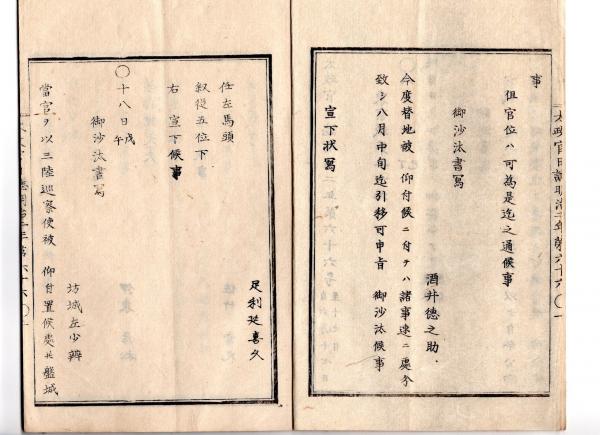 事
但官位ハ可為是迄之通候事
御沙汰書寫
酒井徳之助
今度替地被　仰付候ニ付テハ諸事速ニ處分
致シ八月中旬迄引移可申旨　御沙汰候事
宣下状寫
太政官日誌明治二年第六十六
足利延喜久
任左馬頭
叙從五位下
右　宣下候事
○十八日戊午
御沙汰書寫
坊城左少辨
當官ヲ以三陸巡察使被　仰付置候處其盤城